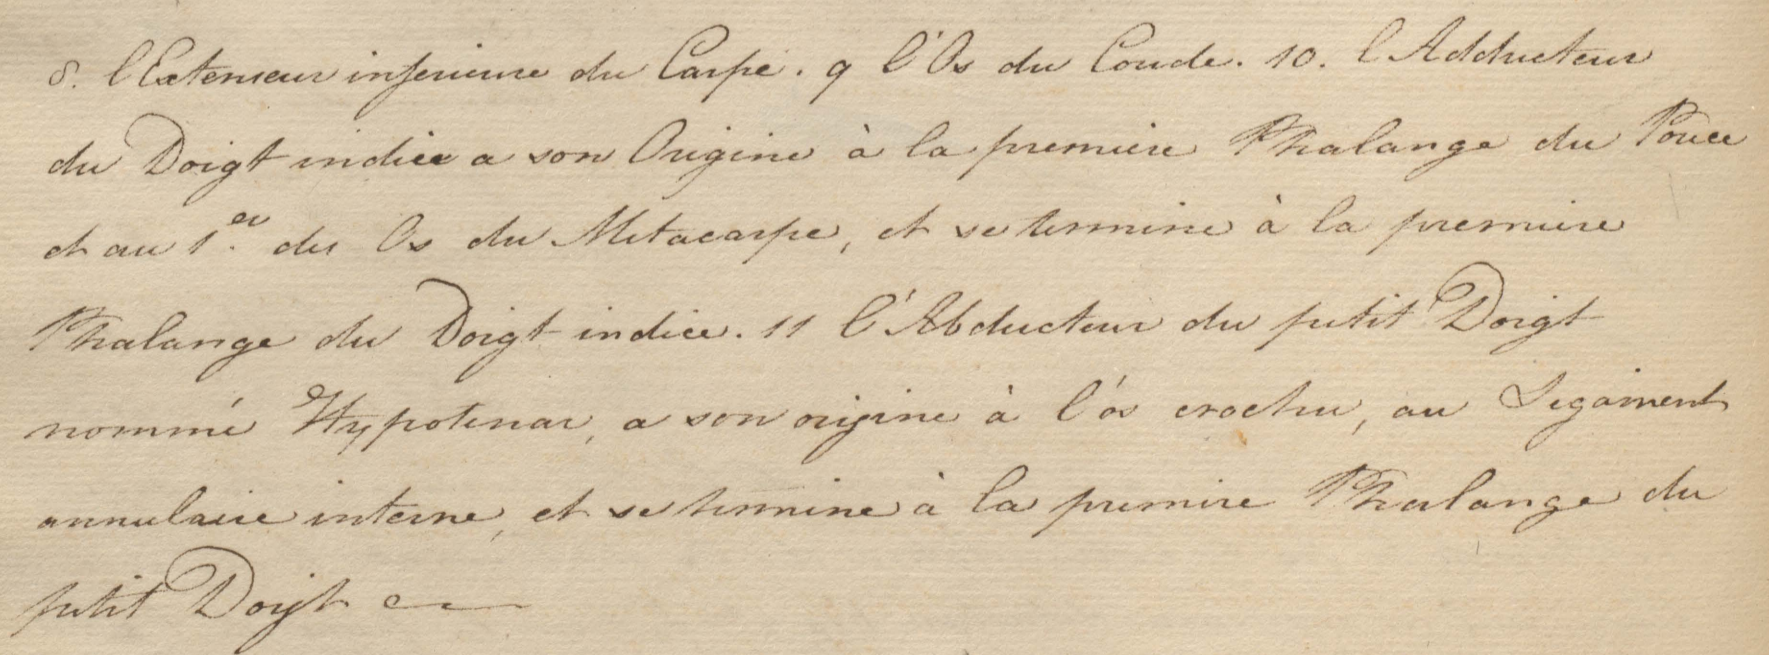 8. l'Extenseur inferieure du Carpe. 9 l'Os du Coude. 10. l'Adducteur
du Doigt indice a son Origine à la premiere Phalange du Pouce
et au 1.er des Os du Metacarpe, et se termine à la premiere
Phalange du Doigt indice. 11 l'Abducteur du petit Doigt
nommé Hypotenar, a son origine à l'ós crochu, au Ligament
annulaire interne, et se termine à la premire Phalange du
petit Doigt